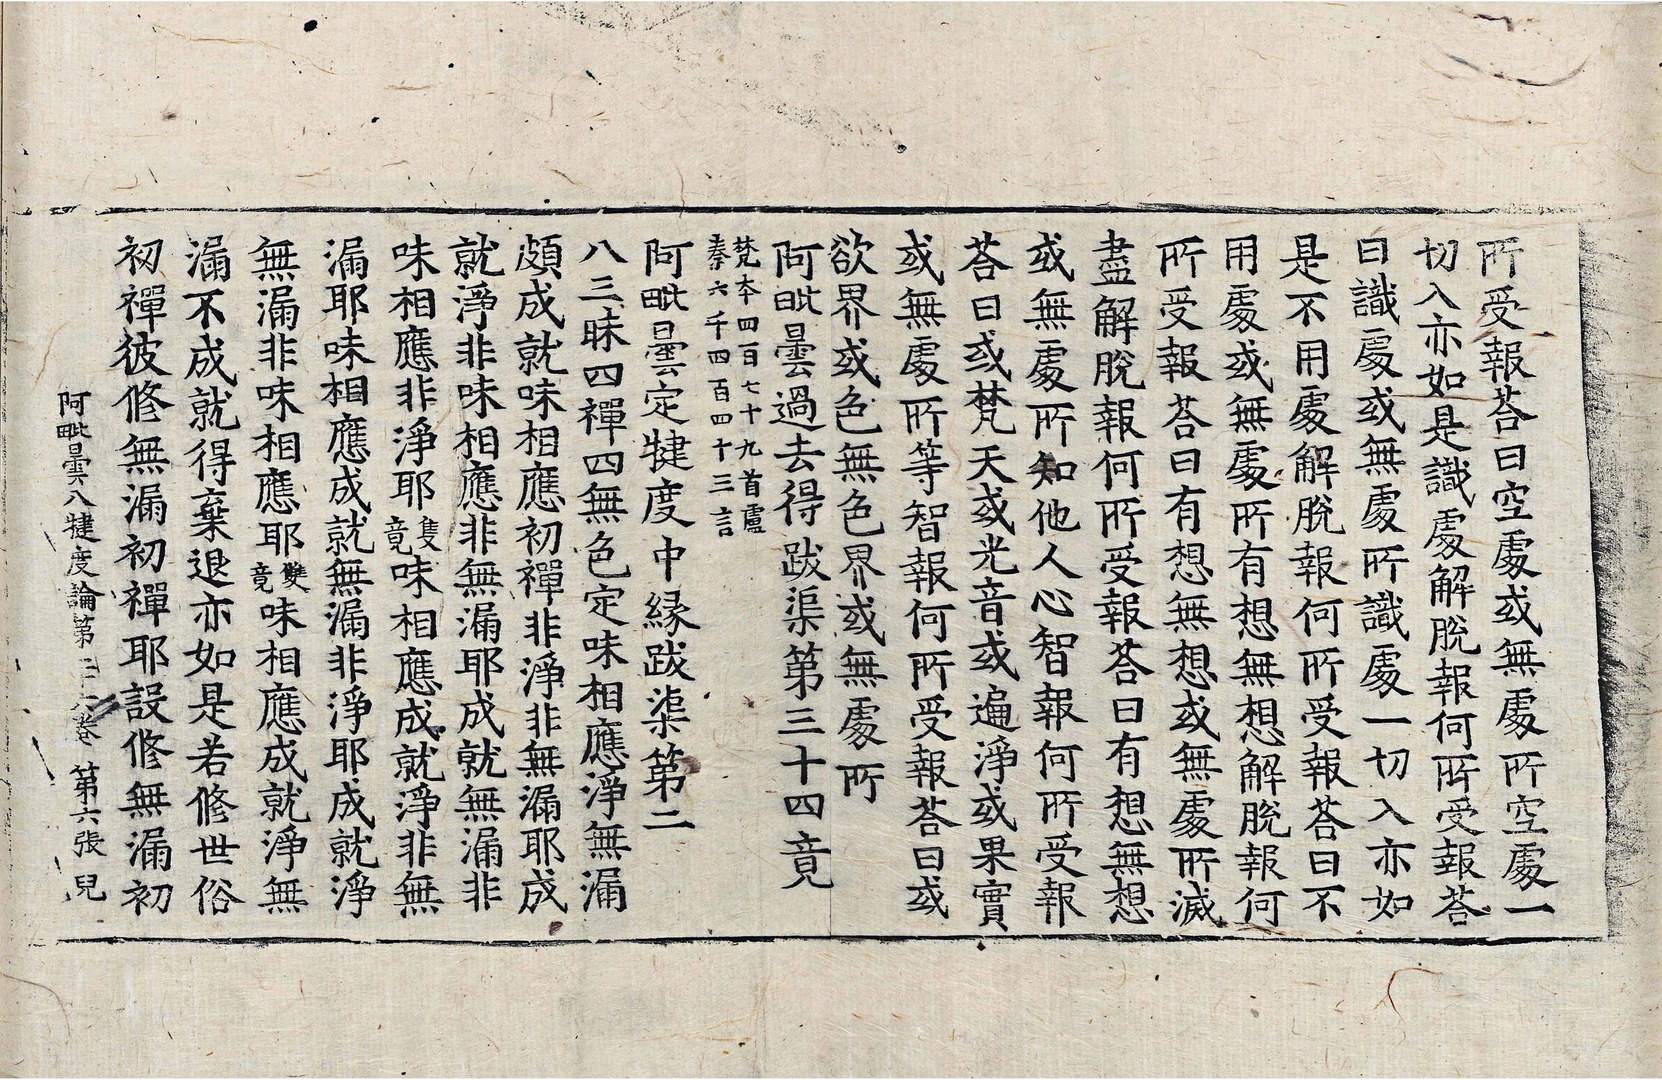 所受報荅曰空處或無處所空處一
切入亦如是識處解脫報何所受報荅
曰識處或無處所識處一切入亦如
是不用處解脫報何所受報荅曰不
用處或無處所有想無想解脫報何
所受報荅曰有想無想或無處所滅
盡解脫報何所受報荅曰有想無想
或無處所知他人心智報何所受報
荅曰或梵天或光音或遍淨或果實
或無處所等智報何所受報荅曰或
欲界或色無色界或無處所
阿毗曇過去得跋渠第三十四竟
梵本四百七十九首盧
秦六千四百四十三言
阿毗曇定犍度中緣跋渠第二
八三昧四禪四無色定味相應淨無漏
頗成就味相應初禪非淨非無漏耶成
就淨非味相應非無漏耶成就無漏非
味相應非淨耶隻竟味相應成就淨非無
漏耶味相應成就無漏非淨耶成就淨
無漏非味相應耶雙竟味相應成就淨無
漏不成就得棄退亦如是若修世俗
初禪彼修無漏初禪耶設修無漏初
阿毗曇八犍度論第 卷 第六張 兒